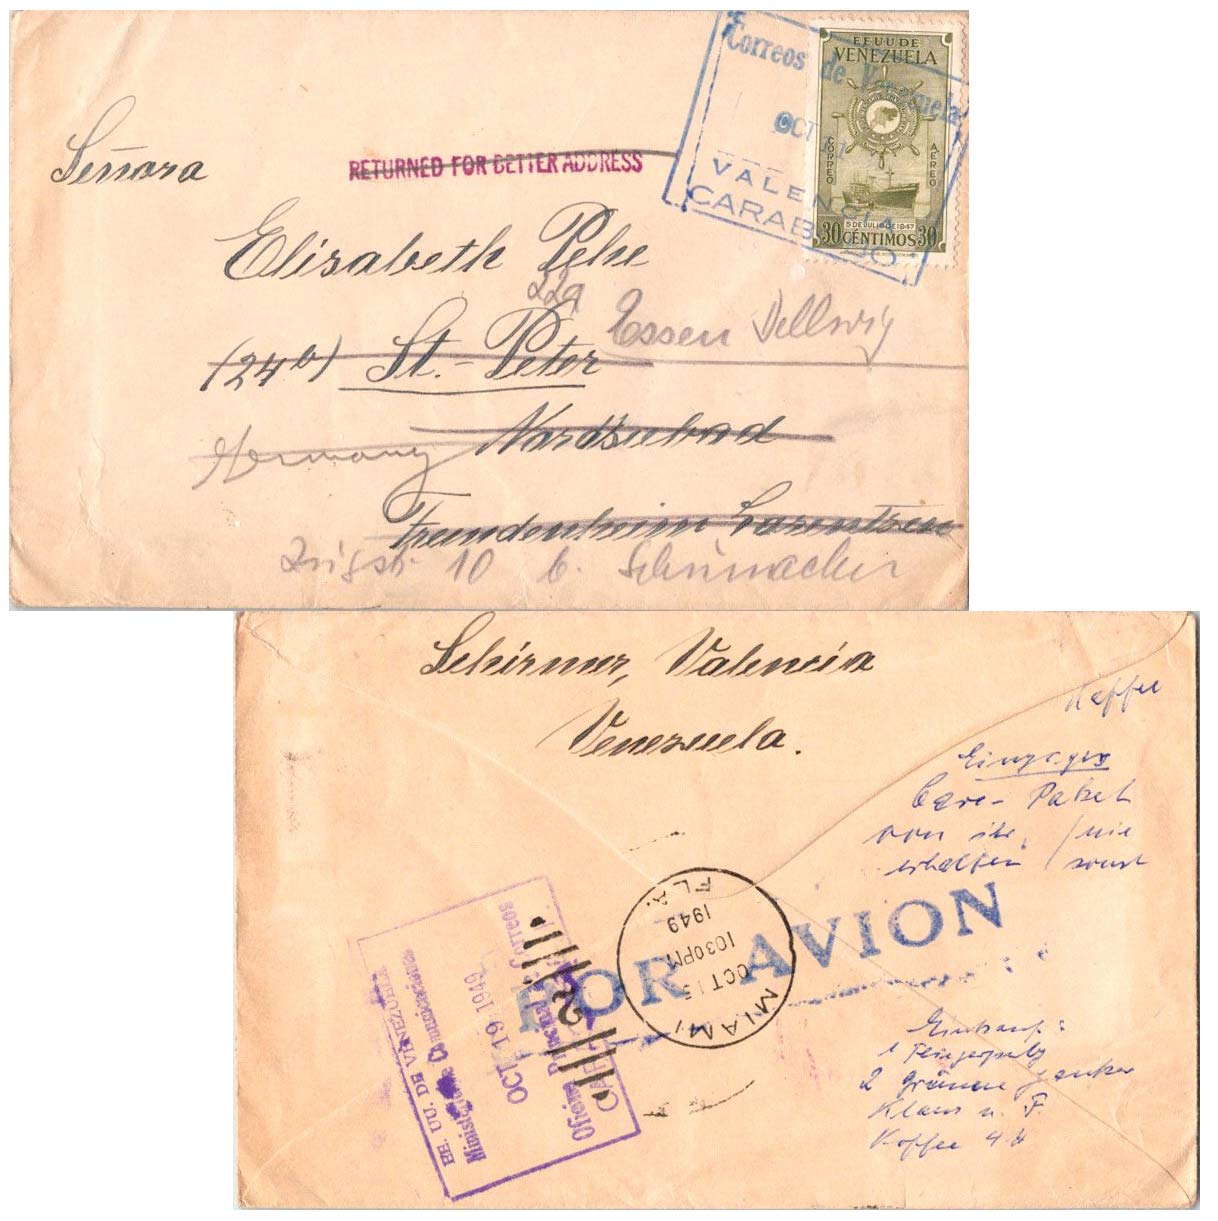 Correos de Venezuela
OCT 11
VALENCIA
CARABOBO
EE.UU.DE
VENEZUELA
CORREO
AEREO
5 DE JULIO DE 1947
30 CÉNTIMOS 30
Señora
RETURNED FOR BETTER ADDRESS
Elisabeth Pehe
22a
Essen Dellwig
(24b) St.-Peter
Nordseebad
Germany
Fremdenheim Lorentzen
10 b. Schumacher
Schirmer, Valencia
Venezuela.
Kaffee
Einziges
Care-Paket
von ihr, / nie
erhalten / sonst
POR AVION
MIAMI
FLA.
OCT 15
1030PM
1949
2
EE. UU. DE VENEZUELA
Ministerio de Comunicaciones
OCT 19 1949
Oficina Principal de Correos
CARACAS
Einkauf:
1
2 grünen Janker
Klaus u. F.
Kaffee 4 tt